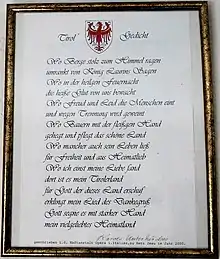 Tirol Gedicht
Wo Berge stolz zum Himmel ragen
umrankt von König Laurins Sagen
Wo in der heilgen Feuernacht
die heiße Glut von uns bewacht
Wo Freud und Leid die Menschen eint
und wegen Trennung wird geweint
Wo Bauern mit der fleißgen Hand
gehegt und pflegt das schöne Land
Wo mancher auch sein Leben ließ
für Freiheit und aus Heimatlieb
Wo ich einst meine Liebe fand
dort ist es mein Tirolerland
für Gott der dieses Land erschuf
erklingt mein Lied des Dankesgruß
Gott segne es mit starker Hand
mein vielgeliebtes Heimatland
geschrieben i.d. Haflingeralm